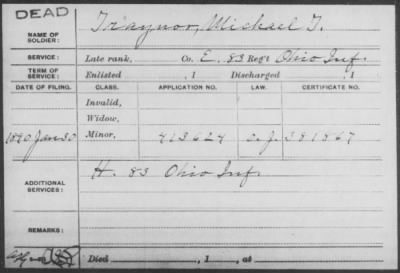 DEAD
NAME OF SOLDIER: Traynor, Michael T.
SERVICE: Late rank, Co. E. 83 Reg't Ohio Inf.
TERM OF SERVICE: Enlisted , 1 Discharged , 1
DATE OF FILING. CLASS. APPLICATION NO. LAW. CERTIFICATE NO.
Invalid,
Widow,
1890 Jan 30 Minor, 413624 381867
ADDITIONAL SERVICES: H. 83 Ohio Inf.
REMARKS:
Died , 1 , at